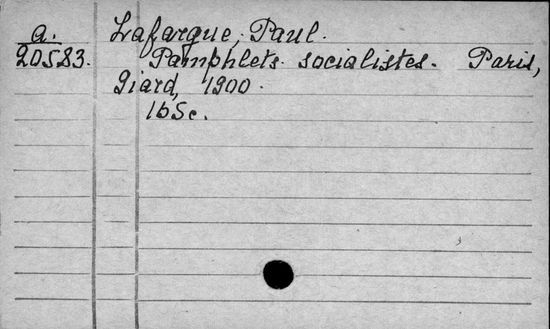 a.
20583.
Lafargue, Paul.
Pamphlets socialistes. Paris,
Giard, 1900.
16Sc.